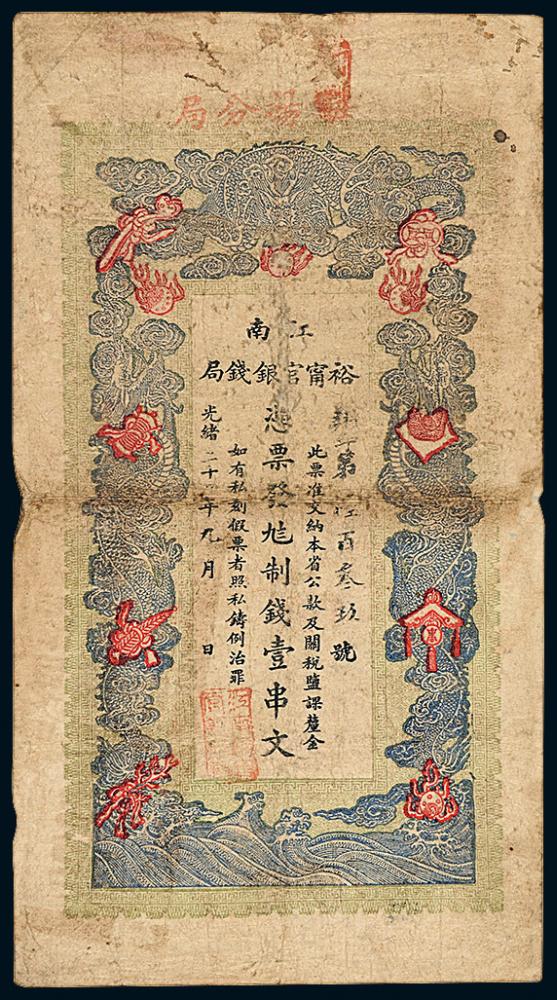 分局
江南
裕甯官銀錢局
第 百叁 玖號
此票准交納本省公款及關税鹽課釐金
憑票發足制錢壹串文
如有私刻假票者照私鑄例治罪
光緒二十 年九月 日